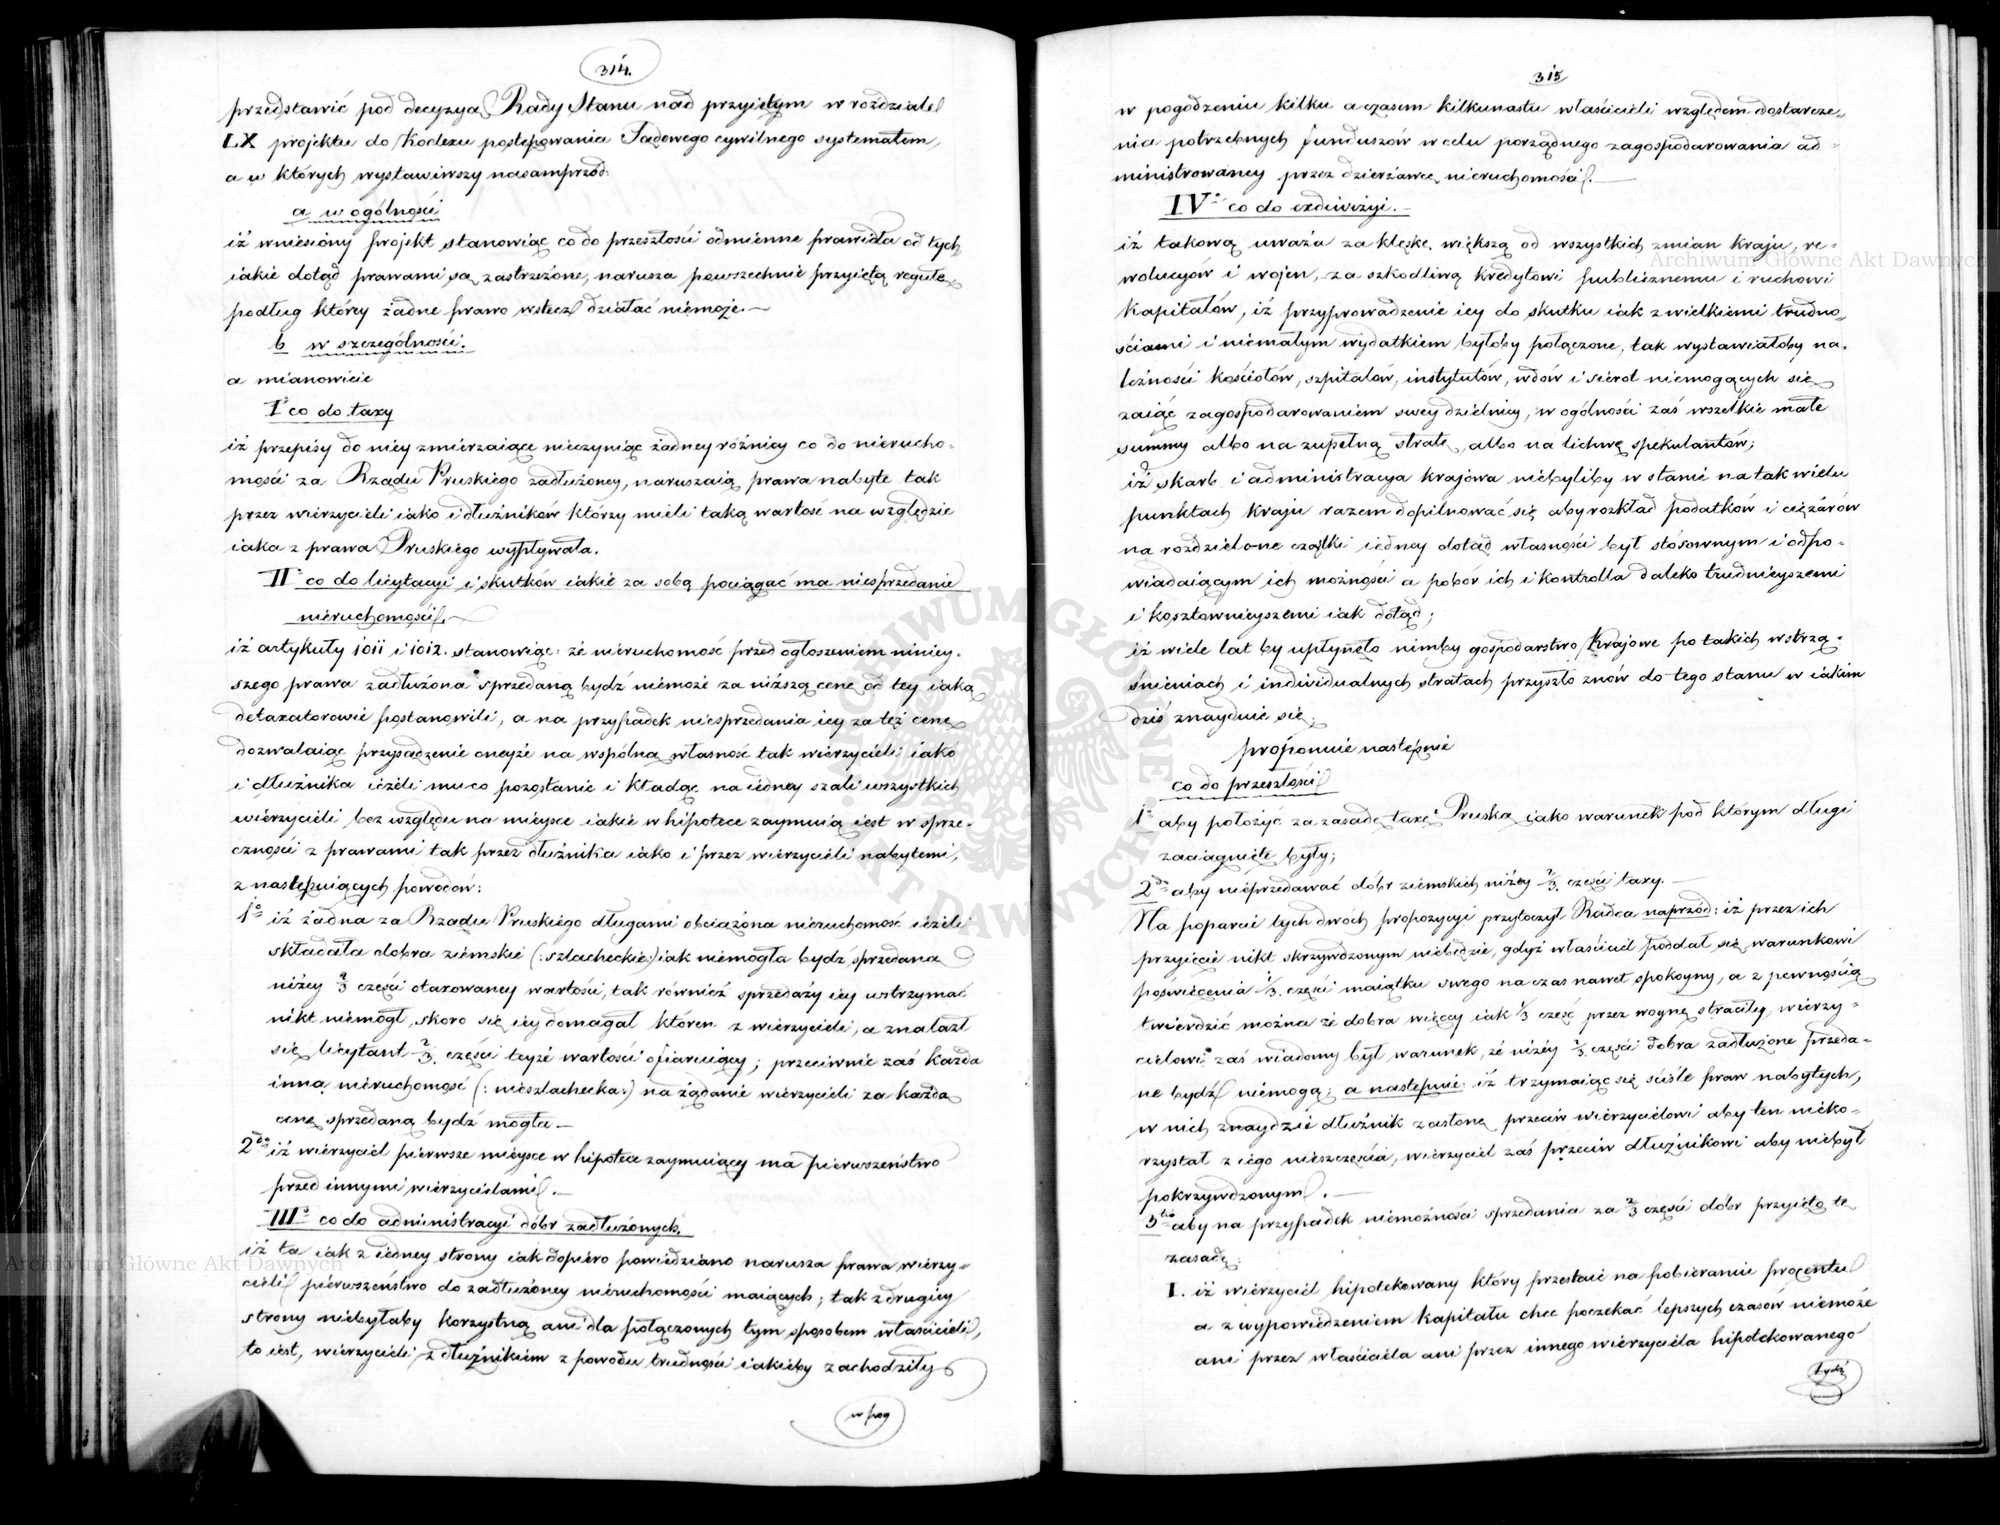 314.
przedstawić pod decyzyą Rady Stanu nad przyiętym w rozdziale
LX projektu do Kodexu postępowania Sądowego cywilnego systematem,
a w których wystawiwszy nasamprzód:
a w ogólności
iż wniesiony projekt stanowiąc co do przeszłości odmienne prawidła od tych
iakie dotąd prawami są zastrzeżone, narusza powszechnie przyiętą regułę
podług którey żadne prawo wstecz działać niemoże.—
b w szczególności.
a mianowicie
I° co do taxy
iż przepisy do niey zmierzaiące nieczyniąc żadney różnicy co do nierucho-
mości za Rządu Pruskiego zadłużoney, naruszaią prawa nabyte tak
przez wierzycieli iako i dłużników którzy mieli taką wartość na względzie
iaka z prawa Pruskiego wypływała.
II° co do licytacyi i skutków iakie za sobą pociągać ma niesprzedanie
nieruchomości.—
iż artykuły 1011 i 1012. stanowiąc: że nieruchomość przed ogłoszeniem niniey-
szego prawa zadłużona sprzedaną bydź niemoże za niższą cenę od tey iaką
detaxatorowie postanowili, a na przypadek niesprzedania iey za tęż cenę
dozwalaiąc przysądzenie oneyże na wspólną własność tak wierzycieli iako
i dłużnika ieżeli mu co pozostanie i kładąc na iedney szali wszystkich
wierzycieli bez względu na mieysce iakie w hipotece zaymuią iest w sprze-
czności z prawami tak przez dłużnika iako i przez wierzycieli nabytemi,
z następuiących powodów:
1° iż żadna za Rządu Pruskiego długami obciążona nieruchomość ieżeli
składała dobra ziemskie (:szlacheckie:) iak niemogła bydź sprzedana
niżey 2/3 części otaxowaney wartości, tak również sprzedaży iey wstrzymać
nikt niemógł, skoro się iey domagał któren z wierzycieli, a znalazł
się licytant 2/3. części teyże wartości ofiaruiący; przeciwnie zaś każda
inna nieruchomość (:nieszlachecka:) na żądanie wierzycieli za każdą
cenę sprzedaną bydź mogła.—
2do iż wierzyciel pierwsze mieysce w hipotece zaymuiący ma pierwszeństwo
przed innymi wierzycielami.—
III° co do administracyi dóbr zadłużonych.
iż ta iak z iedney strony iak dopiero powiedziano narusza prawa wierzy-
cieli pierwszeństwo do zadłużoney nieruchomości maiących; tak z drugiey
strony niebyłaby korzystną ani dla połączonych tym sposobem właścicieli,
to iest, wierzycieli z dłużnikiem z powodu trudności iakieby zachodziły
w pog
315
w pogodzeniu kilku a czasem kilkunastu właścicieli względem dostarcze-
nia potrzebnych funduszów w celu porządnego zagospodarowania ad-
ministrowaney przez dzierżawcę nieruchomości.—
IV° co do exdiwizyi.—
iż takową uważa za klęskę większą od wszystkich zmian kraju, re-
wolucyów i wojen, za szkodliwą kredytowi publicznemu i ruchowi
kapitałów, iż przyprowadzenie iey do skutku iak z wielkiemi trudno-
ściami i niemałym wydatkiem byłoby połączone, tak wystawiałoby na-
leżności kościołów, szpitalów, instytutów, wdów i sierot niemogących się
zaiąć zagospodarowaniem swey dzielnicy, w ogólności zaś wszelkie małe
summy albo na zupełną stratę, albo na lichwę spekulantów;
iż skarb i administracya krajowa niebyliby w stanie na tak wielu
punktach kraju razem dopilnować się, aby rozkład podatków i ciężarów
na rozdzielone cząstki iedney dotąd własności był stósownym i odpo-
wiadaiącym ich możności a pobór ich i kontrolla daleko trudnieyszemi
i kosztownieyszemi iak dotąd;
iż wiele lat by upłynęło nimby gospodarstwo Krajowe po takich wstrzą-
śnieniach i individualnych stratach przyszło znów do tego stanu w iakim
dziś znayduie się;
proponuie następnie
co do przeszłości
1° aby położyć za zasadę taxę Pruską iako warunek pod którym długi
zaciągnięte były;
2do aby niesprzedawać dóbr ziemskich niżey 2/3. części taxy.—
Na poparcie tych dwóch propozycyi przytoczył Radca naprzód: iż przez ich
przyięcie nikt skrzywdzonym niebędzie, gdyż właściciel poddał się warunkowi
poświęcenia 1/3. części maiątku swego na czas nawet spokoyny, a z pewnością
twierdzić można że dobra więcey iak 1/3 część przez woynę straciły, wierzy-
cielowi zaś wiadomy był warunek, że niżey 2/3. części dobra zadłużone przeda-
ne bydź niemogą; a następnie: iż trzymaiąc się ściśle praw nabytych,
w nich znaydzie dłużnik zasłonę przeciw wierzycielowi aby ten nieko-
rzystał z iego nieszczęścia, wierzyciel zaś przeciw dłużnikowi aby niebył
pokrzywdzonym.—
3tio aby na przypadek niemożności sprzedania za 2/3 części dóbr przyięto tę
zasadę:
I. iż wierzyciel hipotekowany który przestaie na pobieraniu procentu
a z wypowiedzeniem kapitału chce poczekać lepszych czasów niemoże
ani przez właściciela ani przez innego wierzyciela hipotekowanego
bydź
Archiwum Główne Akt Dawnych
Archiwum Główne Akt Dawnych
ARCHIWUM GŁÓWNE AKT DAWNYCH